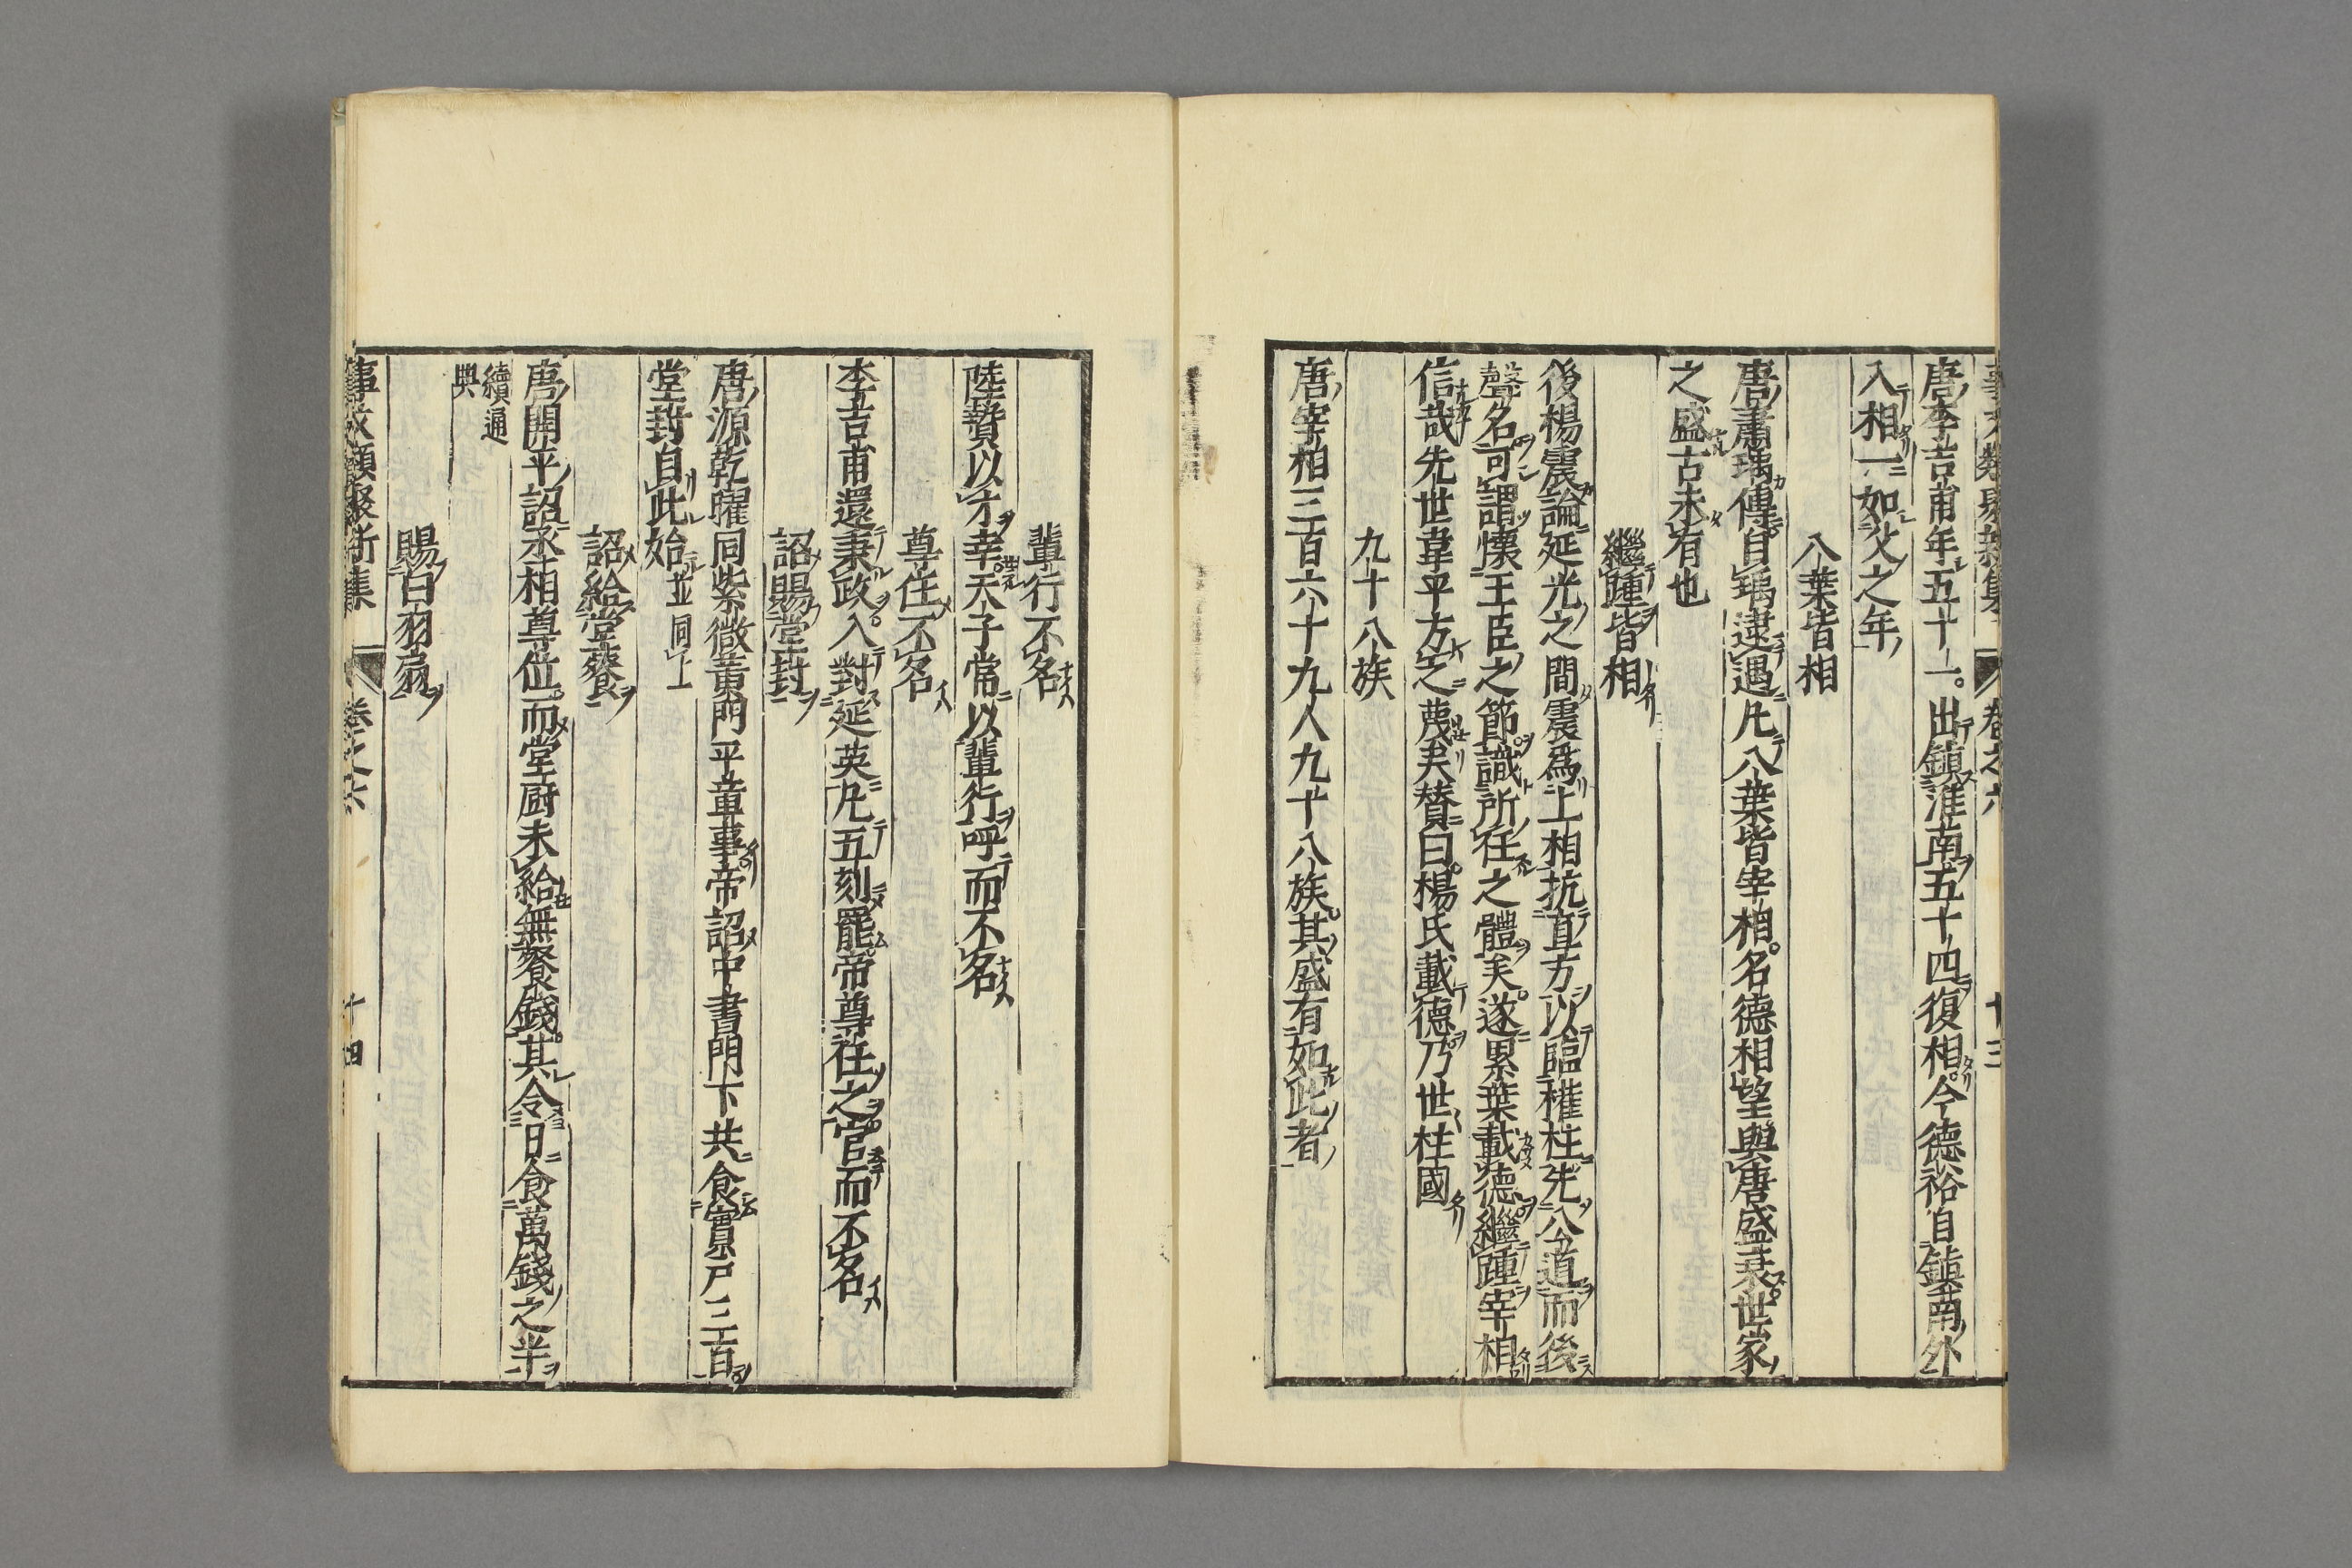 事文類聚新集 卷之六 十三
唐李吉甫年五十一。出鎮淮南五十四復相。今德裕自鎮南外
入相一如父之年
八葉皆相
唐蕭瑀傳自瑀逮遘凡八葉皆宰相。名德相望與唐盛衰世家
之盛古未有也
繼踵皆相
後楊震論延光之間震爲上相抗直方以臨權枉先公道而後
聲名可謂懷王臣之節識所任之體矣。遂累葉載德繼踵宰相
信哉先世韋平方之蔑矣贊曰。楊氏載德乃世柱國
九十八族
唐宰相三百六十九人九十八族。其盛有如此者
輩行不名
陸贄以才幸天子常以輩行呼而不名
尊任不名
李吉甫還秉政。入對延英凡五刻罷帝尊任之官而不名
詔賜堂封
唐源乾曜同紫微黃門平章事帝詔中書門下共食實戶三百
堂封自此始 並同上
詔給堂餐
唐開平詔丞相尊位。而堂廚未給無餐錢。其令日食萬錢之半
續通
與
賜白羽扇
事文類聚新集 卷之六 十四